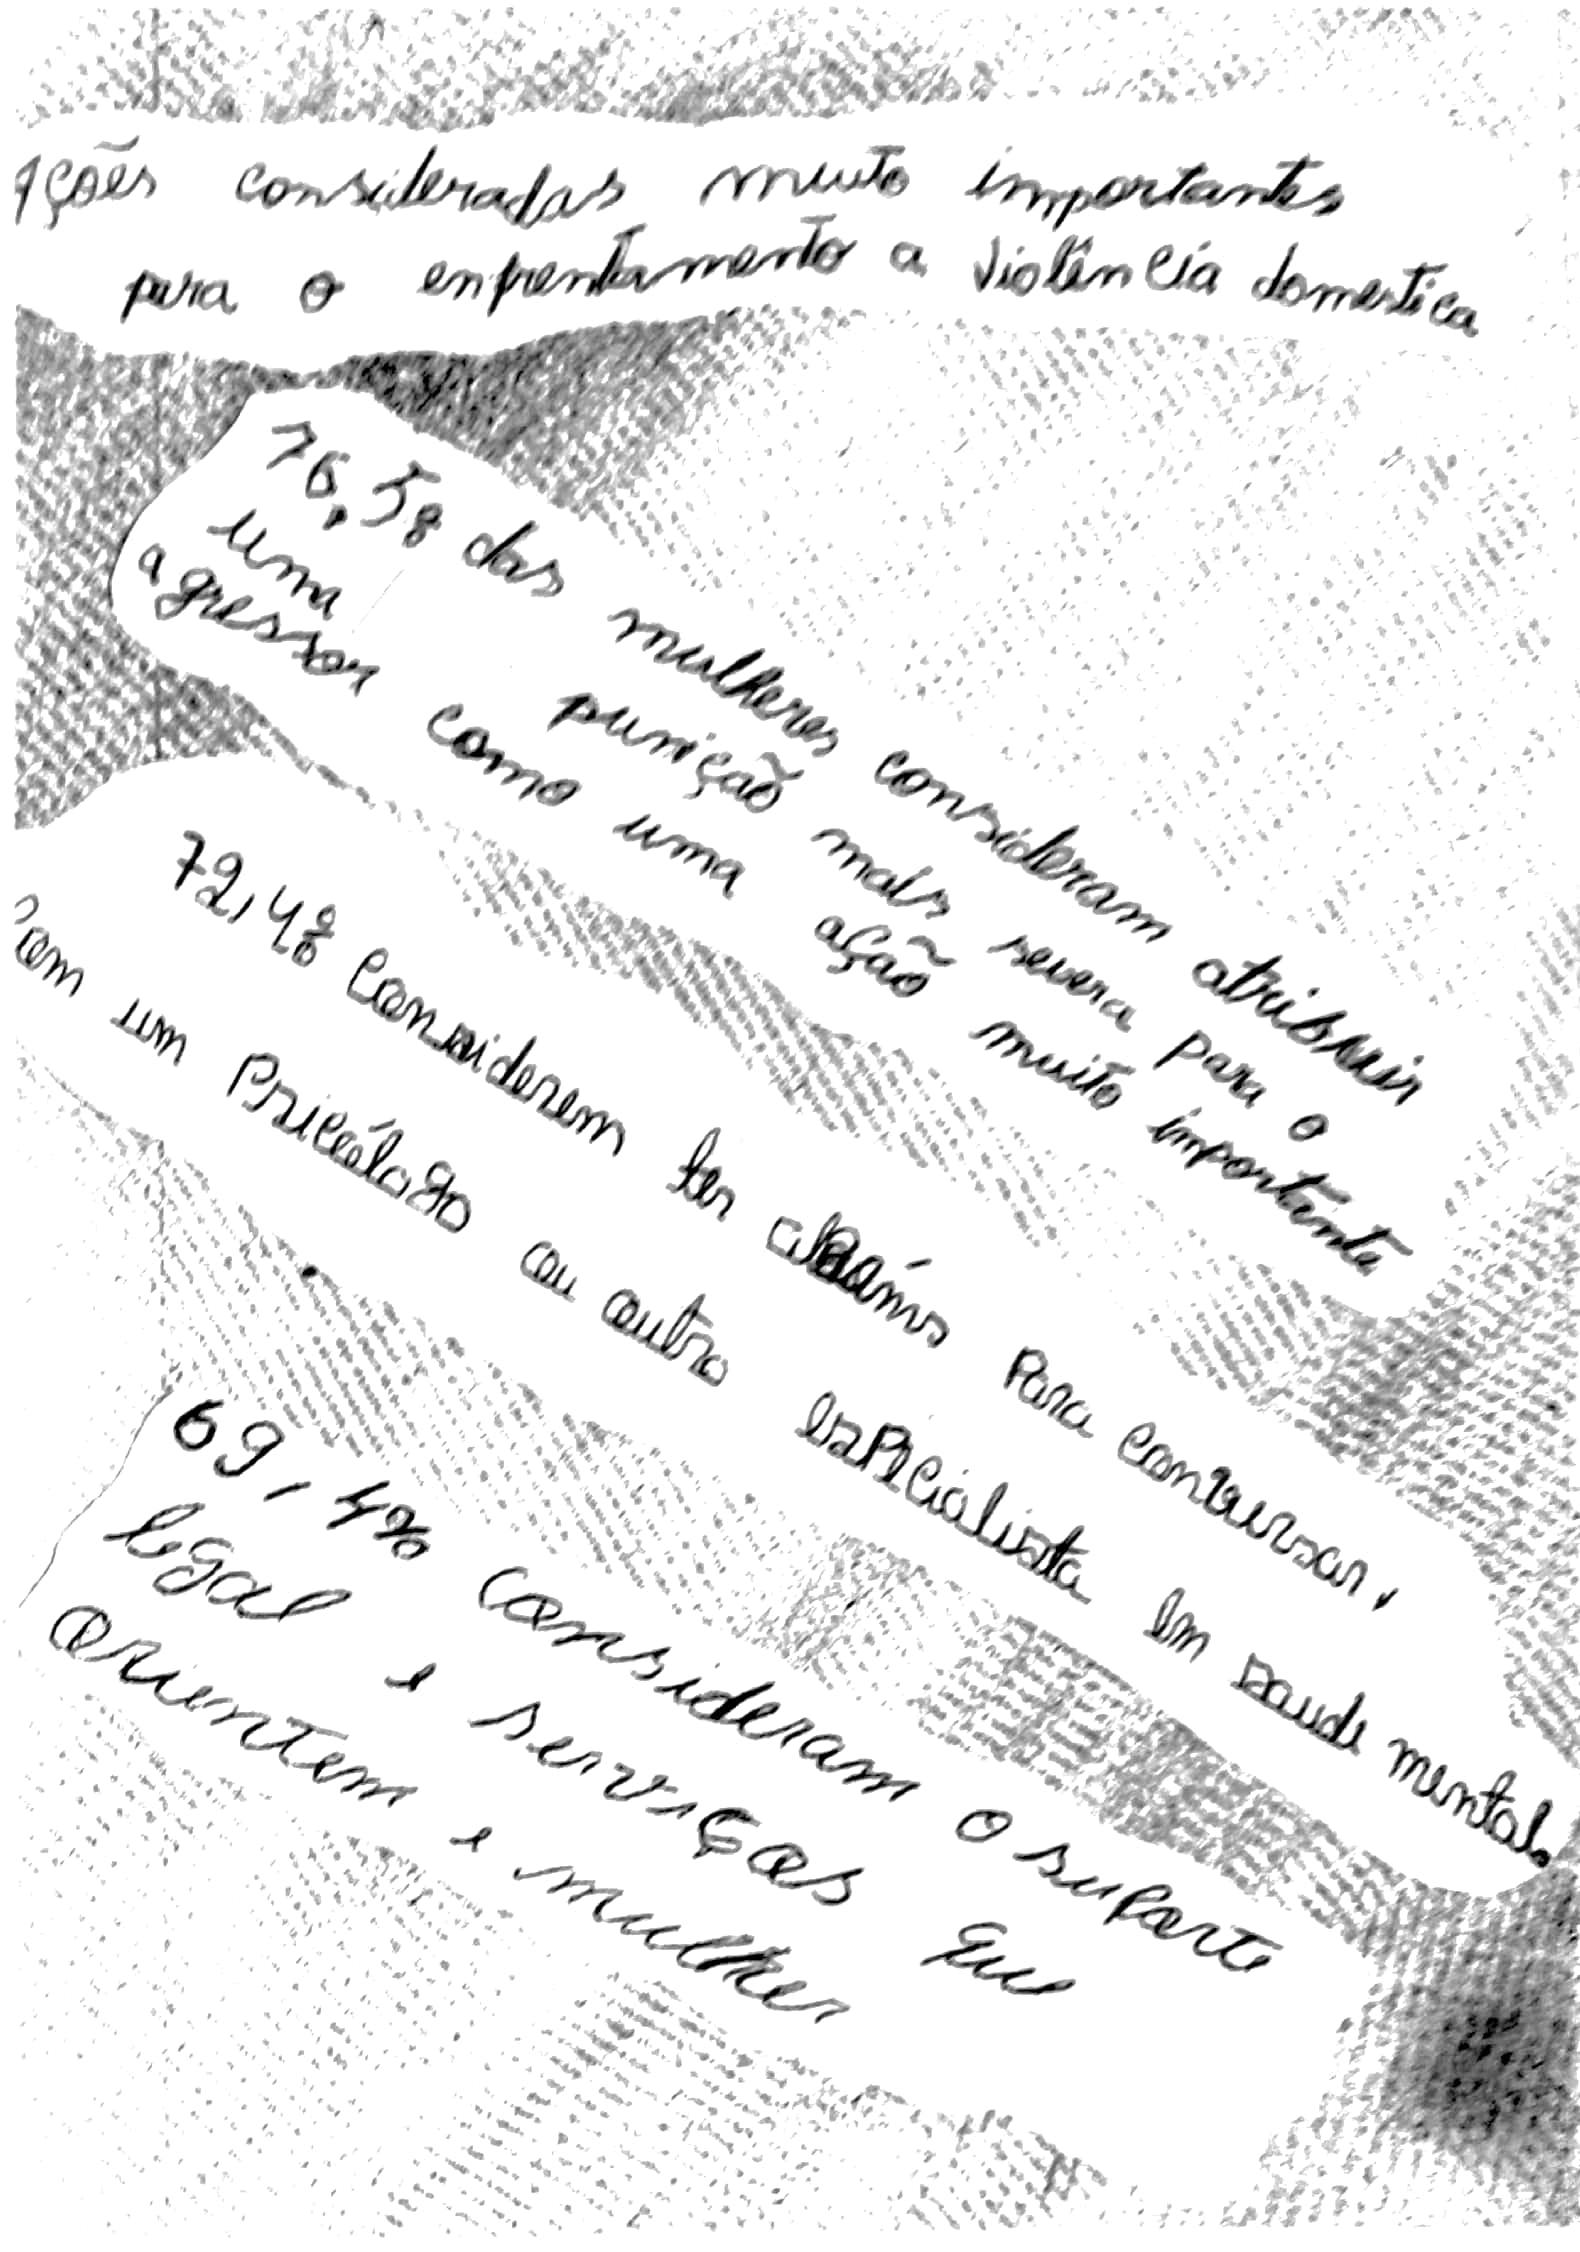 Ações consideradas muito importantes
para o enfrentamento a violência domestica
76,5% das mulheres consideram atribuir
uma punição mais severa para o
agressor como uma ação muito importante
72,4% considerem ter alguém para conversar,
com um Psicólogo ou outro especialista em saude mental.
69,4% consideram o suporte
legal e serviços que
orientem e mulher